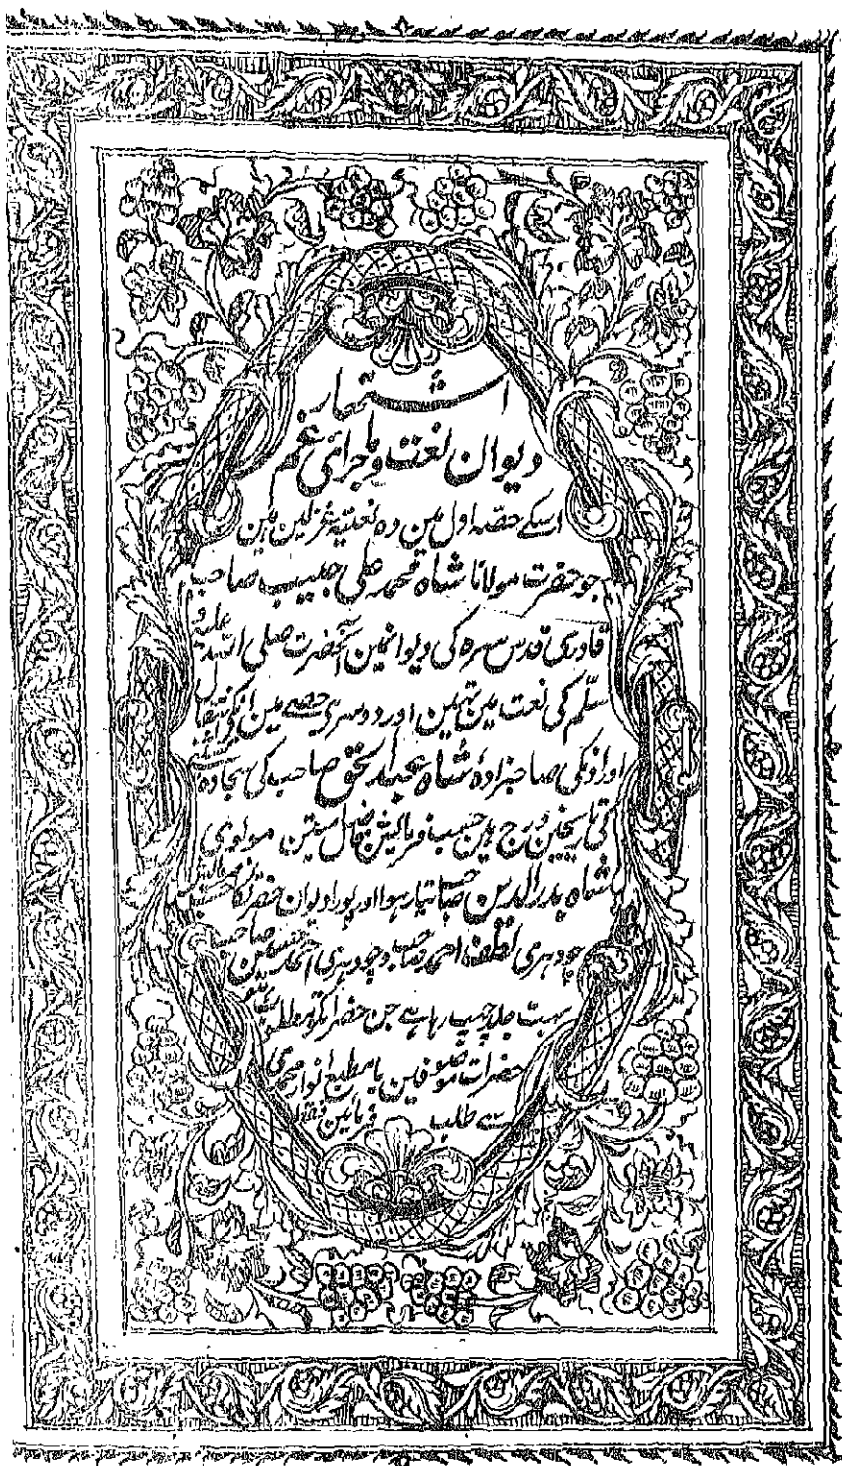 اشتہار
دیوان نعت و ماجرائے غم
اسکے حصہ اول مین وہ نعتیہ غزلین ہین
جو حضرت مولانا شاہ محمد علی حبیب صاحب
قادری قدس سرہ کی دیوانمین آنحضرت صلی اللہ علیہ و
سلم کی نعت مین تہین اور دوسری حصے مین انکی انتقال
اور اونکی صاحبزادہ شاہ عبدالحق صاحب کی سجادہ
کی تاریخین درج ہین حسب فرمایش مولوی
شاہ بدرالدین صاحب تیار ہوا اور پورا دیوان
چودہری لطف احمد صاحب و چودہری صاحب
بہت جلد چہپ رہا ہے جن حضرات کو مطلوب
حضرات موصوفین یا مطبع انوار محمدی
سے طلب فرمائین فقط